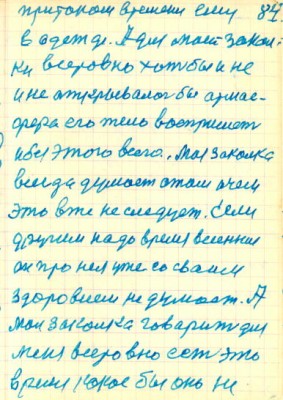 притоком времени ему 84.
в одежде. А для моей закол-
ки всеровно хотябы и не
и не открывалог бы атмас-
фера его тело восприимет
ибез этого всего. Моя заколка
всегда думает отом очем
это вже не следует. Если
другием надо время весенния
он про нея уже со своем
здоровием не думает. А
моя заколка говарит для
меня всеровно сот это
время какое бы онь ни